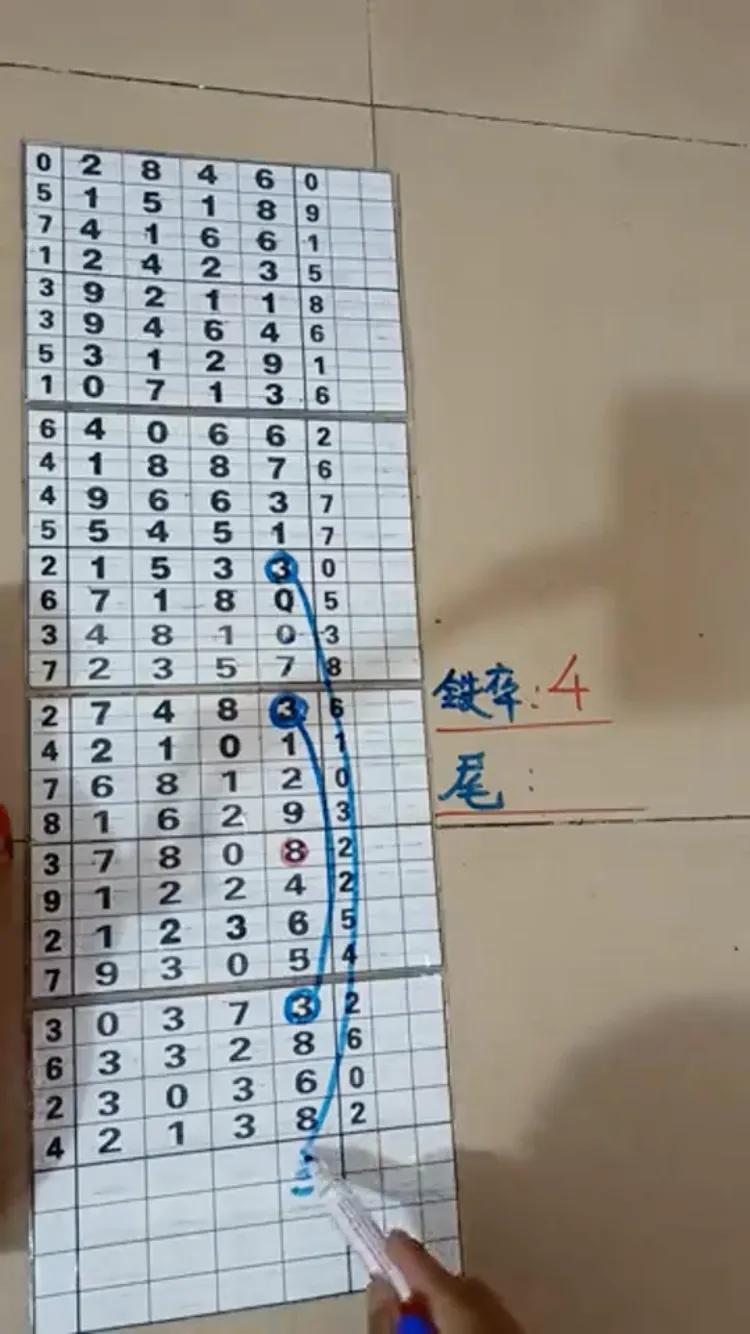 0 2 8 4 6 0
5 1 5 1 8 9
7 4 1 6 6 1
1 2 4 2 3 5
3 9 2 1 1 8
3 9 4 6 4 6
5 3 1 2 9 1
1 0 7 1 3 6
6 4 0 6 6 2
4 1 8 8 7 6
4 9 6 6 3 7
5 5 4 5 1 7
2 1 5 3 3 0
6 7 1 8 0 5
3 4 8 1 0 3
7 2 3 5 7 8
2 7 4 8 3 6
4 2 1 0 1 1
7 6 8 1 2 0
8 1 6 2 9 3
3 7 8 0 8 2
9 1 2 2 4 2
2 1 2 3 6 5
7 9 3 0 5 4
3 0 3 7 3 2
6 3 3 2 8 6
2 3 0 3 6 0
4 2 1 3 8 2
铁卒:4
尾: